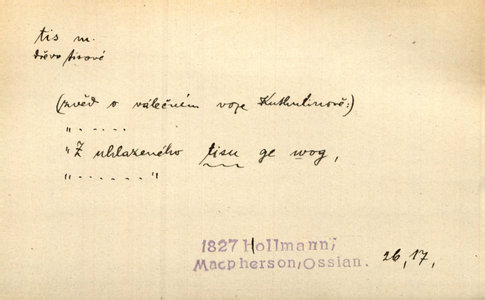 tis m.
dřevo tisové
(zvěd o válečném voze Kuthulinově:)
„. . . . .
„Z uhlazeného tisu ge wog,
„. . . . . . "
1827 Hollmann,
Macpherson, Ossian. 26, 17,